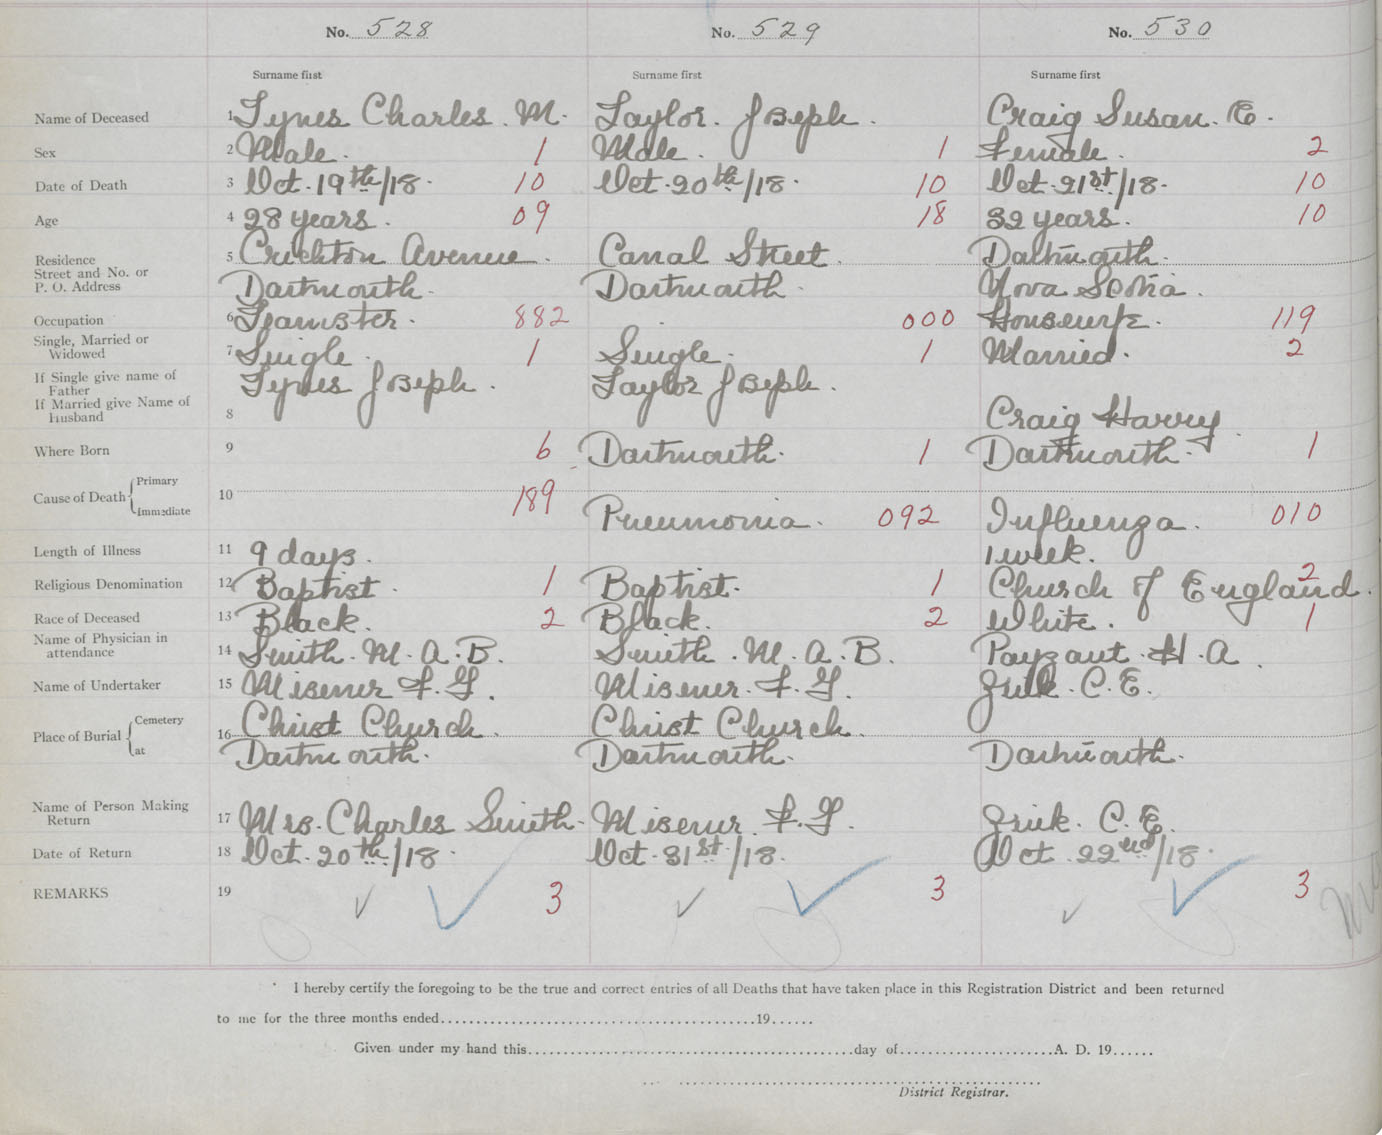 No. 528 No. 529 No. 530
Surname first Surname first Surname first
Name of Deceased 1 Tynes Charles. M. Taylor. Joseph. Craig Susan. E.
Sex 2 Male. 1 Male. 1 Female. 2
Date of Death 3 Oct. 19th/18. 10 Oct. 20th/18. 10 Oct. 21st/18. 10
Age 4 28 years. 09 18 32 years. 10
Residence 5 Crichton Avenue. Canal Street. Dartmouth.
Street and No. or
P. O. Address Dartmouth. Dartmouth. Nova Scotia.
Occupation 6 Teamster. 882 000 Housewife. 119
Single, Married or
Widowed 7 Single. 1 Single. 1 Married. 2
If Single give name of
Father Tynes Joseph. Taylor Joseph.
If Married give Name of
Husband 8 Craig Harry.
Where Born 9 6 Dartmouth. 1 Dartmouth. 1
Cause of Death Primary
10 189
Immediate Pneumonia. 092 Influenza. 010
Length of Illness 11 9 days. 1 week.
Religious Denomination 12 Baptist. 1 Baptist. 1 Church of England. 2
Race of Deceased 13 Black. 2 Black. 2 White. 1
Name of Physician in
attendance 14 Smith. M. A. B. Smith. M. A. B. Payzant. H. A.
Name of Undertaker 15 Misener F. G. Misener. F. G. Zink. C. E.
Place of Burial Cemetery 16 Christ Church. Christ Church.
at Dartmouth. Dartmouth. Dartmouth.
Name of Person Making
Return 17 Mrs. Charles Smith. Misener. F. G. Zink. C. E.
Date of Return 18 Oct. 20th/18. Oct. 31st/18. Oct. 22nd/18.
REMARKS 19 3 3 3
I hereby certify the foregoing to be the true and correct entries of all Deaths that have taken place in this Registration District and been returned
to me for the three months ended..........19......
Given under my hand this..........day of..........A. D. 19......
District Registrar.